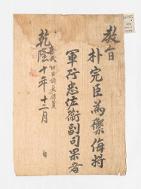 教旨
朴完臣爲禦侮將
軍行忠佐衛副司果者
乾隆十年十二月